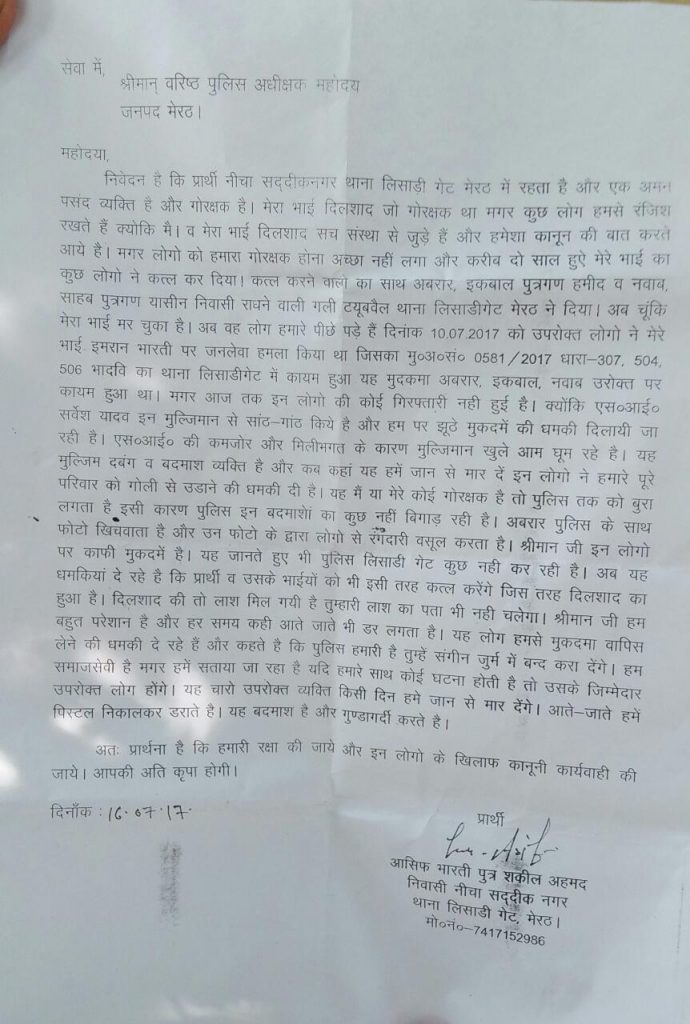 सेवा में,
श्रीमान् वरिष्ठ पुलिस अधीक्षक महोदय
जनपद मेरठ।
महोदया,
निवेदन है कि प्रार्थी नीचा सद्दीकनगर थाना लिसाडी गेट मेरठ में रहता है और एक अमन
पसंद व्यक्ति है और गोरक्षक है। मेरा भाई दिलशाद जो गोरक्षक था मगर कुछ लोग हमसे रंजिश
रखते हैं क्योकि मै। व मेरा भाई दिलशाद सच संस्था से जुड़े हैं और हमेशा कानून की बात करते
आये है। मगर लोगो को हमारा गोरक्षक होना अच्छा नहीं लगा और करीब दो साल हुऐ मेरे भाई का
कुछ लोगो ने कत्ल कर दिया। कत्ल करने वालों का साथ अबरार, इकबाल पुत्रगण हमीद व नवाब,
साहब पुत्रगण यासीन निवासी रावने वाली गली टयूबवैल थाना लिसाडीगेट मेरठ ने दिया। अब चूंकि
मेरा भाई मर चुका है। अब वह लोग हमारे पीछे पड़े हैं दिनांक 10.07.2017 को उपरोक्त लोगो ने मेरे
भाई इमरान भारती पर जनलेवा हमला किया था जिसका मु०अ०सं० 0581/2017 धारा–307, 504,
506 भादवि का थाना लिसाडीगेट में कायम हुआ यह मुदकमा अबरार, इकबाल, नवाब उरोक्त पर
कायम हुआ था। मगर आज तक इन लोगो की कोई गिरफ्तारी नही हुई है। क्योंकि एस०आई०
सर्वेश यादव इन मुल्जिमान से सांठ-गांठ किये है और हम पर झूठे मुकदमें की धमकी दिलायी जा
रही है। एस०आई० की कमजोर और मिलीभगत के कारण मुल्जिमान खुले आम घूम रहे है। यह
मुल्जिम दबंग व बदमाश व्यक्ति है और कब कहां यह हमें जान से मार दें इन लोगो ने हमारे पूरे
परिवार को गोली से उडाने की धमकी दी है। यह मैं या मेरे कोई गोरक्षक है तो पुलिस तक को बुरा
लगता है इसी कारण पुलिस इन बदमाशों का कुछ नहीं बिगाड़ रही है। अबरार पुलिस के साथ
फोटो खिचवाता है और उन फोटो के द्वारा लोगो से रंगदारी वसूल करता है। श्रीमान जी इन लोगो
पर काफी मुकदमें है। यह जानते हुए भी पुलिस लिसाडी गेट कुछ नही कर रही है। अब यह
धमकियां दे रहे है कि प्रार्थी व उसके भाईयों को भी इसी तरह कत्ल करेंगे जिस तरह दिलशाद का
हुआ है। दिलशाद की तो लाश मिल गयी है तुम्हारी लाश का पता भी नही चलेगा। श्रीमान जी हम
बहुत परेशान है और हर समय कही आते जाते भी डर लगता है। यह लोग हमसे मुकदमा वापिस
लेने की धमकी दे रहे हैं और कहते है कि पुलिस हमारी है तुम्हें संगीन जुर्म में बन्द करा देंगे। हम
समाजसेवी है मगर हमें सताया जा रहा है यदि हमारे साथ कोई घटना होती है तो उसके जिम्मेदार
उपरोक्त लोग होंगे। यह चारो उपरोक्त व्यक्ति किसी दिन हमे जान से मार देंगे। आते-जाते हमें
पिस्टल निकालकर डराते है। यह बदमाश है और गुण्डागर्दी करते है।
अतः प्रार्थना है कि हमारी रक्षा की जाये और इन लोगो के खिलाफ कानूनी कार्यवाही की
जाये। आपकी अति कृपा होगी।
दिनाँक : 16.07.17.
प्रार्थी
आसिफ भारती पुत्र शकील अहमद
निवासी नीचा सद्दीक नगर
थाना लिसाडी गेट, मेरठ।
मो०नं०–7417152986